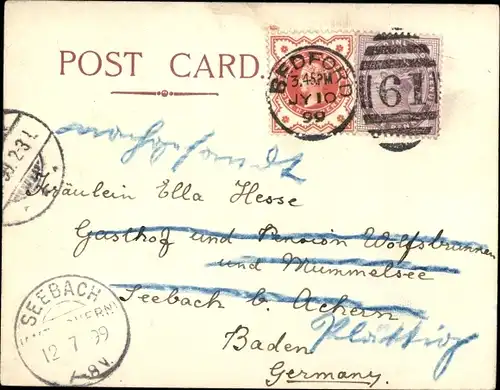 POST CARD.
BEDFORD
3.45PM
JY 10
99
61
nachgesandt
Fräulein Ella Hesse
Gasthof und Pension Wolfsbrunnen
und Mummelsee
Seebach b. Achern
Plättig
Baden
Germany.
SEEBACH
12 7 99
7-8V.